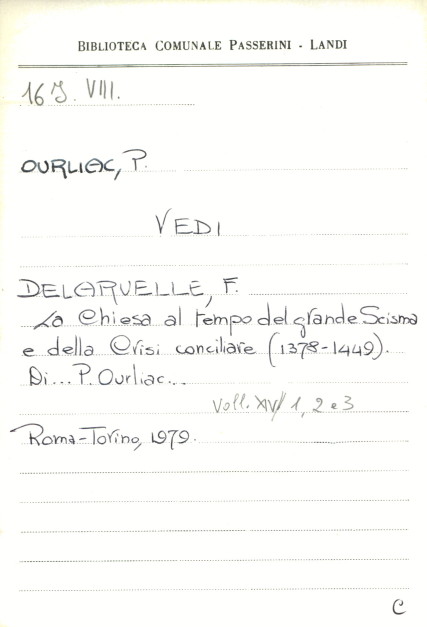 BIBLIOTECA COMUNALE PASSERINI - LANDI
16 J. VIII.
OURLIAC, P.
VEDI
DELARUELLE, F.
La Chiesa al tempo del grande Scisma
e della Crisi conciliare (1378-1449).
Di... P. Ourliac...
Voll. XIV/1, 2 e 3
Roma-Torino, 1979.
C